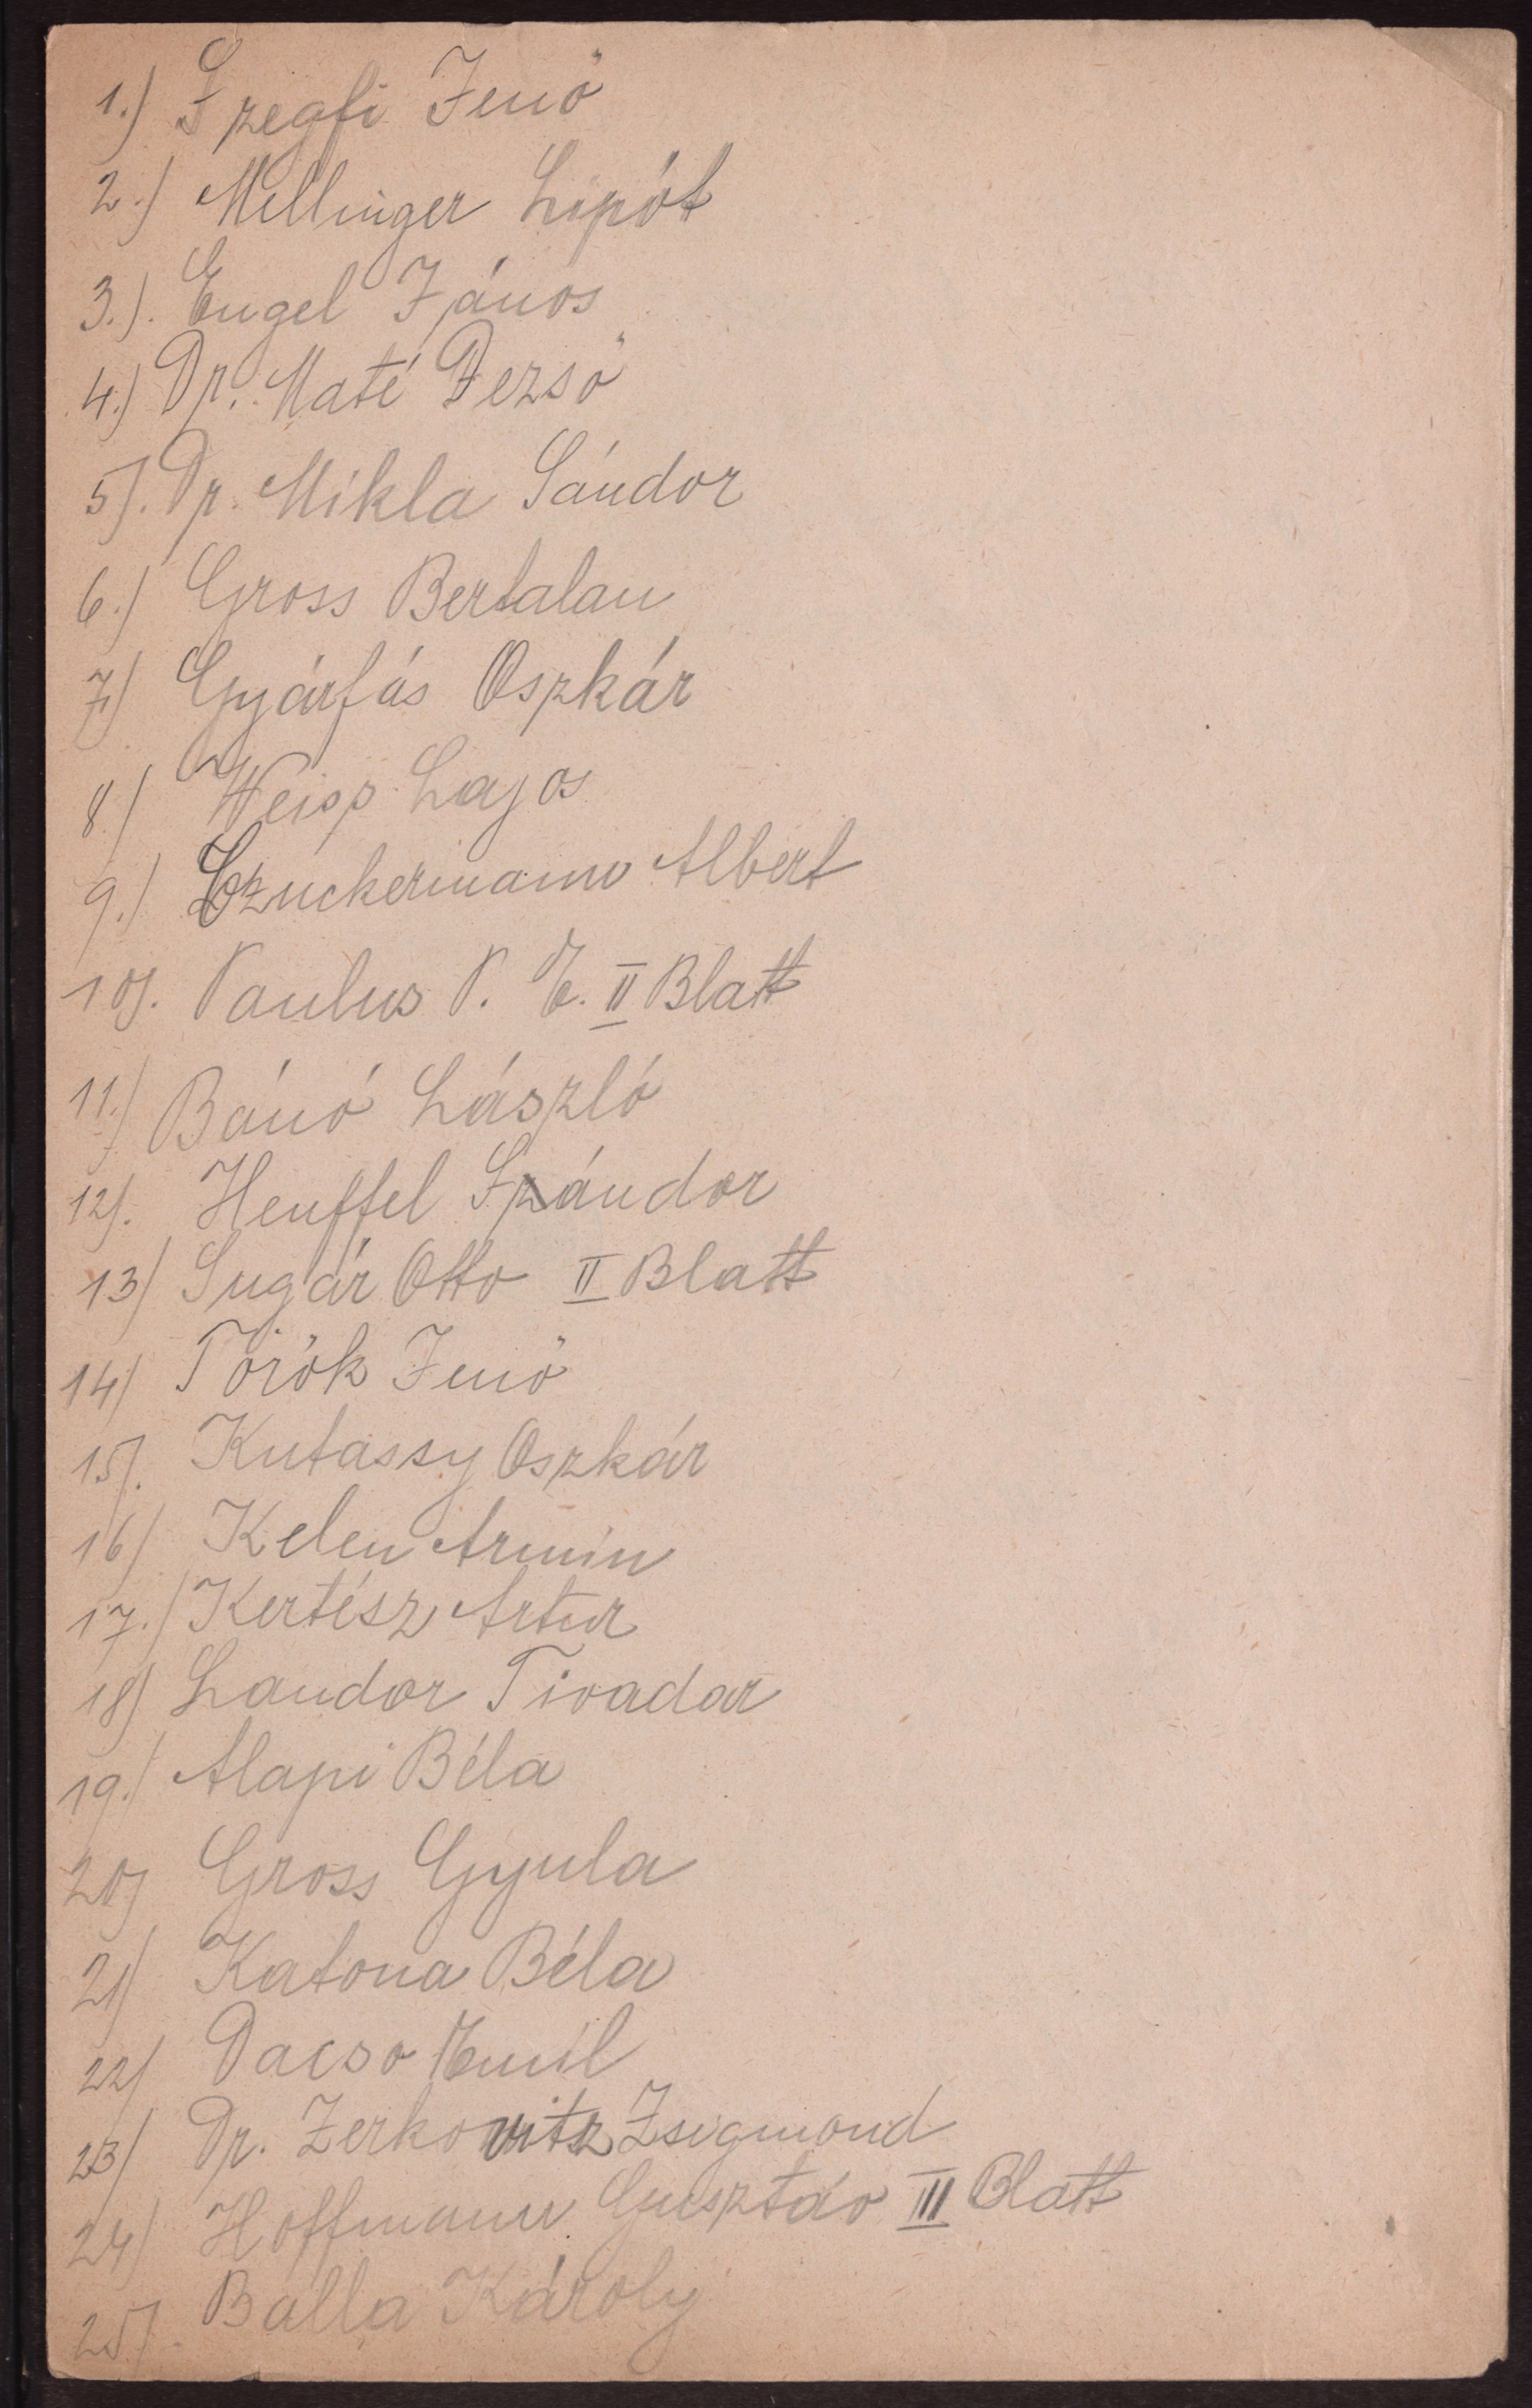 1.) Szegfi Jenő
2.) Millinger Lipót
3.). Engel János
4.) Dr. Maté Dezső
5). Dr. Mikla Sándor
6.) Gross Bertalan
7.) Gyárfás Oszkár
8.) Weisz Lajos
9.) Czuckermann Albert
10). Paulus P. E. II Blatt
11.) Bánó László
12). Henffel Szándor
13) Sugár Otto II Blatt
14) Török Jenő
15). Kutassy Oszkár
16) Kelen Armin
17.) Kertész Artur
18) Landor Tivadar
19.) Alapi Béla
20) Gross Gyula
21) Katona Béla
22) Dacso Emil
23) Dr. Zerkovitz Zsigmond
24) Hoffmann Gusztáv III Blatt
25). Balla Károly